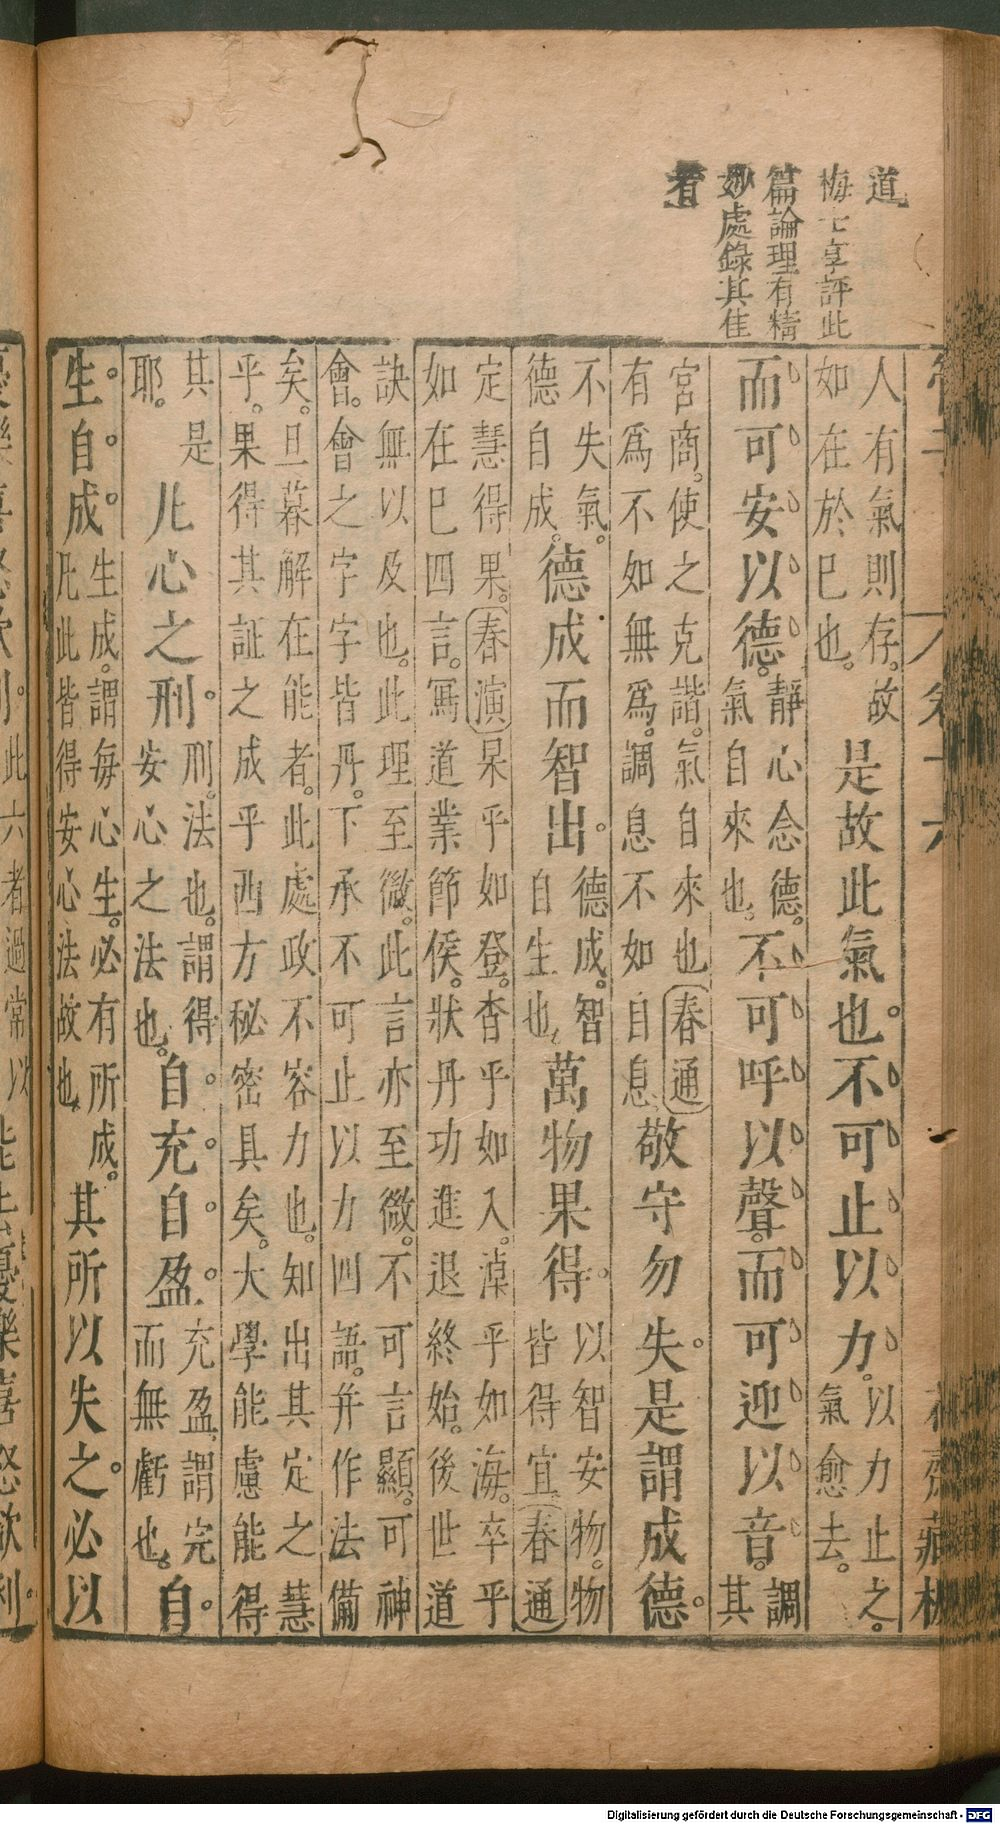 道
梅士享評此
篇論理有精
妙處錄其佳
者
人有氣則存故
如在於巳也
是故此氣也不可止以力
以力止之
氣愈去
而可安以德
靜心念德
氣自來也
不可呼以聲而可迎以音
調
其
宮商使之克諧氣自來也春通
有爲不如無爲調息不如自息
敬守勿失是謂成德
不失氣
德自成
德成而智出
德成智
自生也
萬物果得
以智安物物
皆得宜春通
定慧得果春演杲乎如登杳乎如入淖乎如海卒乎
如在巳四言寫道業節侯狀丹功進退終始後世道
訣無以及也此理至微此言亦至微不可言顯可神
會會之字字皆丹下承不可止以力四語并作法備
矣旦暮解在能者此處政不容力也知出其定之慧
乎果得其証之成乎西方秘密具矣大學能慮能得
其是
耶
凡心之刑
刑法也謂得
安心之法也
自充自盈
充盈謂完
而無虧也
自
生自成
生成謂每心生必有所成
凡此皆得安心法故也
其所以失之必以
此六者過常以
花齋藏板
Digitalisierung gefördert durch die Deutsche Forschungsgemeinschaft - DFG